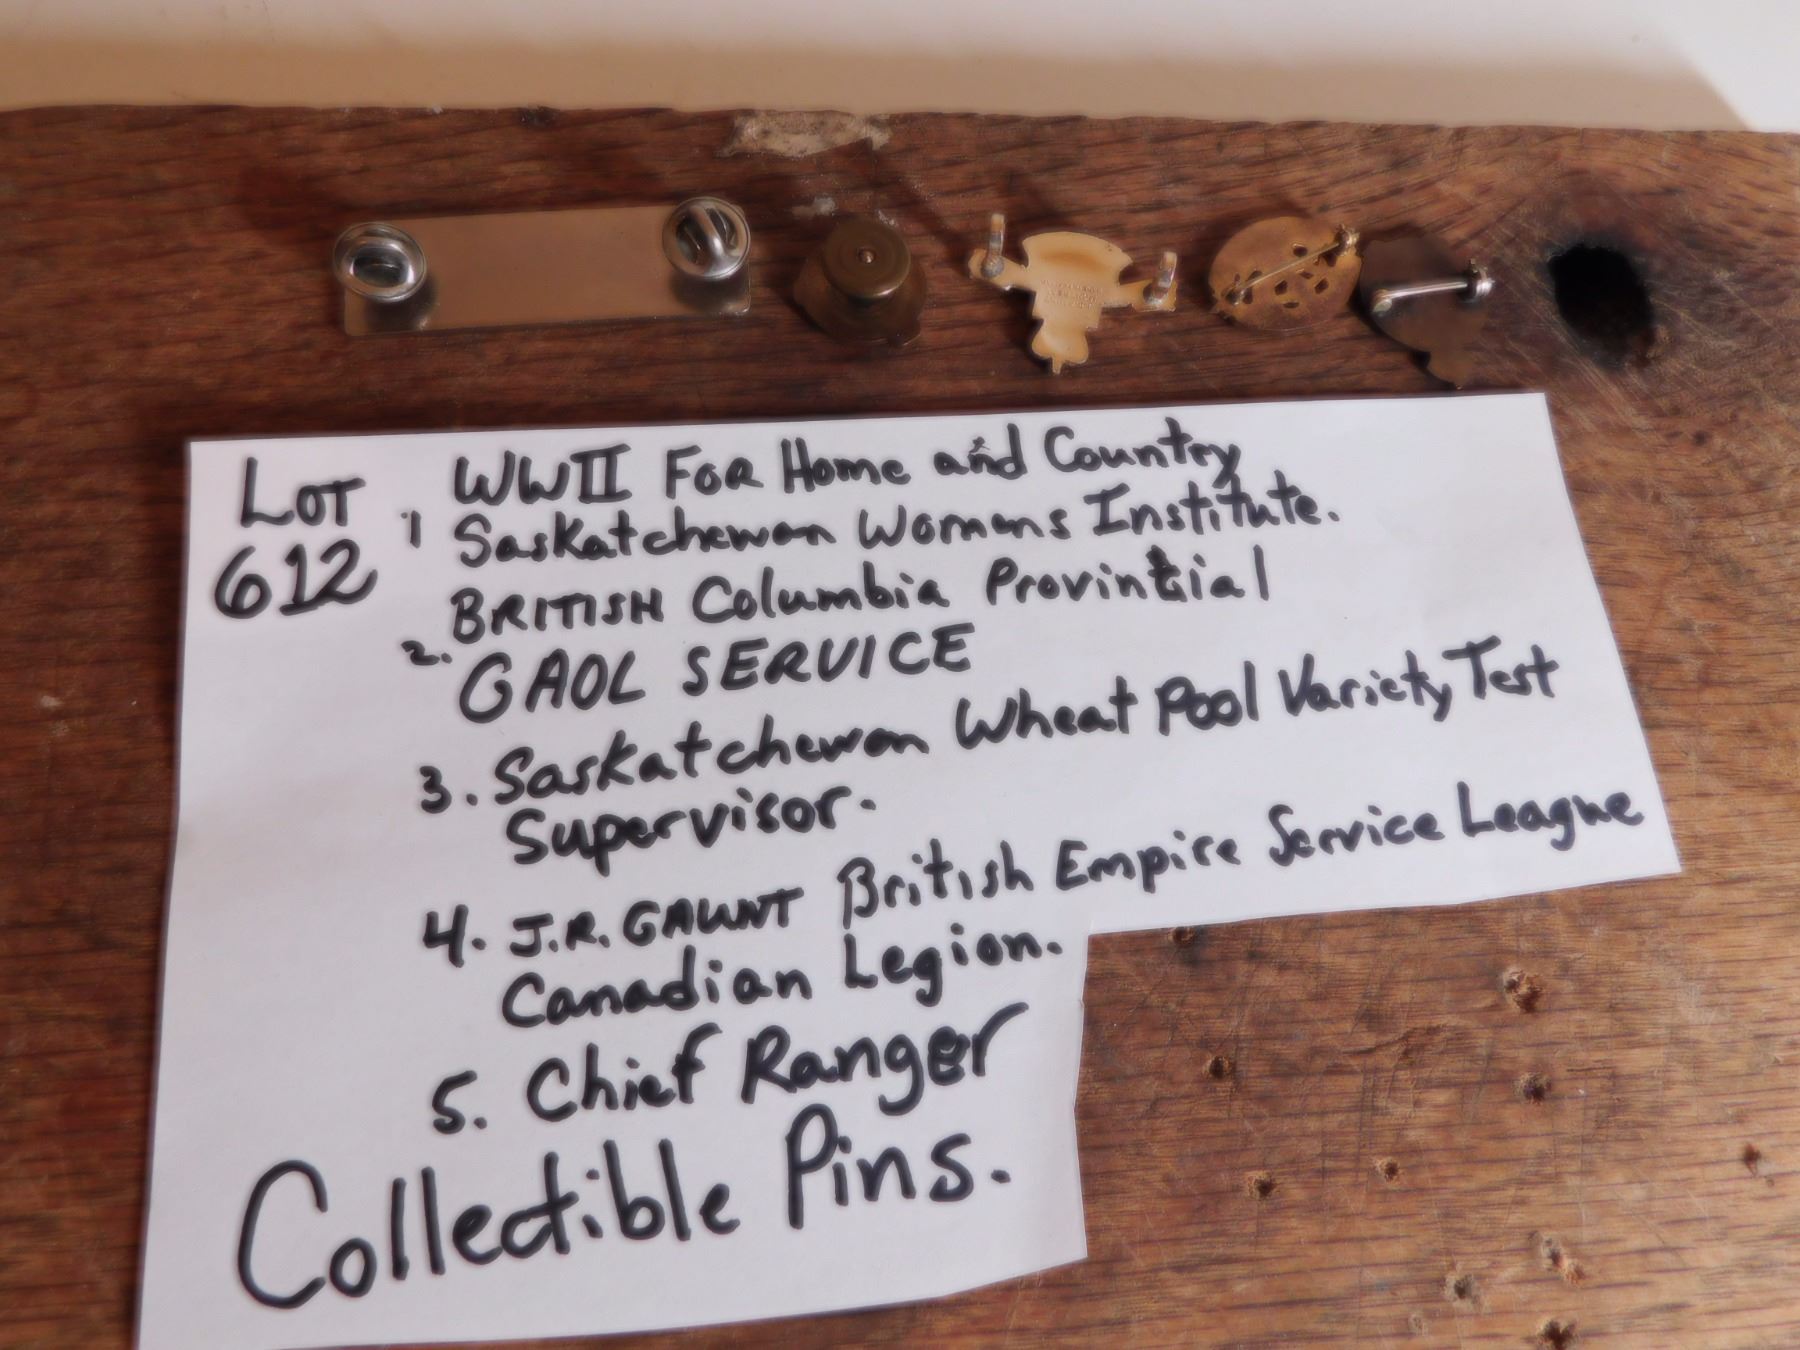 LOT
612
1 WWII FOR Home and Country
Saskatchewan Womens Institute.
2. BRITISH Columbia Provintial
GAOL SERVICE
3. Saskatchewan Wheat Pool Variety Test
Supervisor.
4. J.R. GAUNT British Empire Service League
Canadian Legion.
5. Chief Ranger
Collectible Pins.